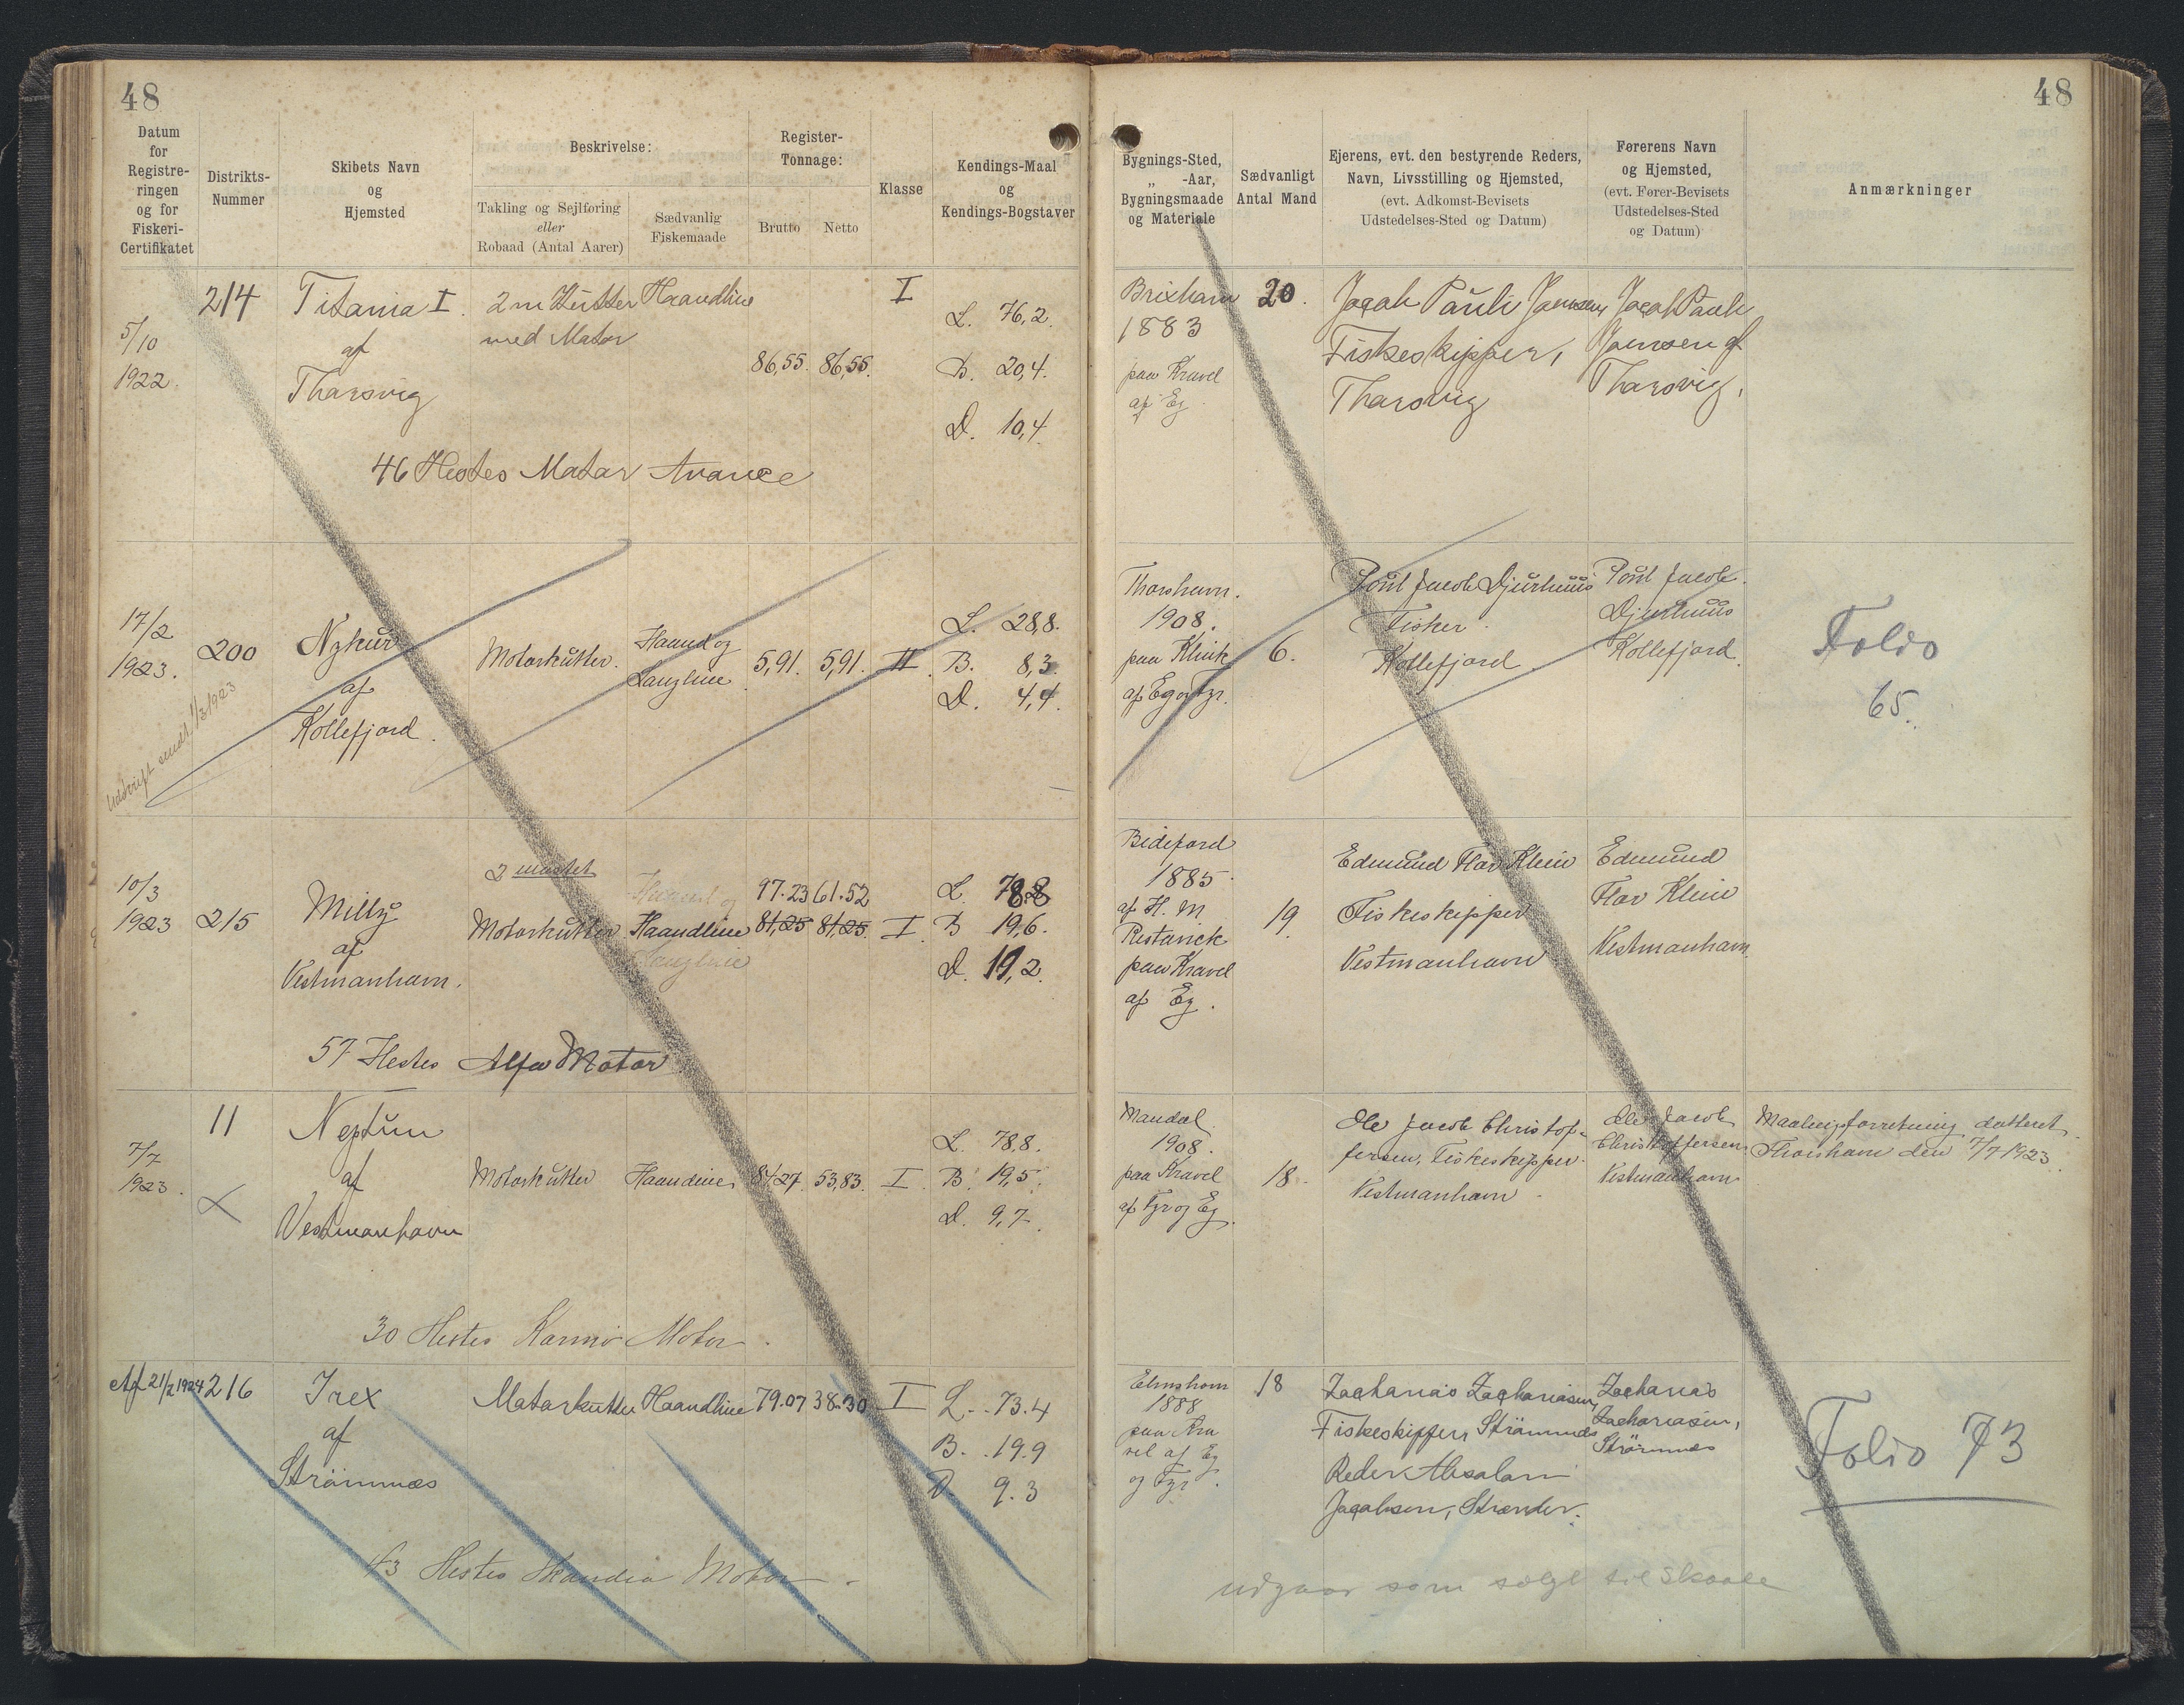 48
48
Datum
for
Registre-
ringen
og for
Fiskeri-
Certifikatet
Distrikts-
Nummer
Skibets Navn
og
Hjemsted
Beskrivelse:
Takling og Sejlføring
eller
Robaad (Antal Aarer)
Sædvanlig
Fiskemaade
Register-
Tonnage:
Brutto
Netto
Klasse
Kendings-Maal
og
Kendings-Bogstaver
Bygnings-Sted,
„ -Aar,
Bygningsmaade
og Materiale
Sædvanligt
Antal Mand
Ejerens, evt. den bestyrende Reders,
Navn, Livsstilling og Hjemsted,
(evt. Adkomst-Bevisets
Udstedelses-Sted og Datum)
Førerens Navn
og Hjemsted,
(evt. Fører-Bevisets
Udstedelses-Sted
og Datum)
Anmærkninger
5/10
1922.
214
Titania I.
af
Tharsvig
2 m Kutter
med Motor
Haandline
86,55. 86,55.
I
L. 76,2.
B. 20,4.
D. 10,4.
46 Hestes Motor Avance
Brixham
1883
paa Kravel
af Eg.
20.
Jacob Pauli Joensen,
Fiskeskipper,
Tharsvig
Jacob Pauli
Joensen af
Tharsvig.
17/2
1923.
Udskrift sendt 1/3 1923
200
Nykur
af
Kollefjord.
Motorkutter.
Haand og
Langline
5,91. 5,91.
II
L. 28,8.
B. 8,3
D. 4,4.
Thorshavn.
1908.
paa Klink
af Eg og Fyr.
6.
Poul Jacob Djurhuus
Fisker.
Kollefjord.
Poul Jacob
Djurhuus
Kollefjord.
Folio
65.
10/3
1923
215
Milly
af
Vestmanhavn.
2 mastet
Motorkutter
Haand og
Haandline
Langline
97.23 61.52
81,25 81,25
I.
L. 78.8
B 19,6.
D. 19,2.
57 Hestes Alfa Motor
Bideford
1885.
af H. M.
Restarick
paa Kravel
af Eg.
19.
Edmund Flor Klein
Fiskeskipper
Vestmanhavn
Edmund
Flor Klein
Vestmanhavn.
7/7
1923.
11
Neptun
af
Vestmanhavn
Motorkutter
Haandline
81,27. 53,83.
I.
L. 78,8.
B. 19,5.
D. 9,7.
30 Hestes Karmø Motor.
Mandal
1908.
paa Kravel
af Fyr og Eg.
18.
Ole Jacob Christof-
fersen, Fiskeskipper.
Vestmanhavn.
Ole Jacob
Christoffersen
Vestmanhavn
Maalingsforretning datteret
Thorshavn den 7/7 1923.
Af 21/2 1924
216
Irex
af
Strömnæs
Motorkutter
Haandline
79.07 38.30
I
L. 73.4
B. 19.9
D. 9.3
43 Hestes Skandia Motor.
Elmshorn
1888
paa Kra
vel af Eg
og Fyr.
18
Zacharias Zachariasen,
Fiskeskipper, Strömnæs
Reder Absalon
Jacobsen, Strænder.
Zacharias
Zachariasen,
Strömnæs
Folio 73
udgaar som solgt til Skaale